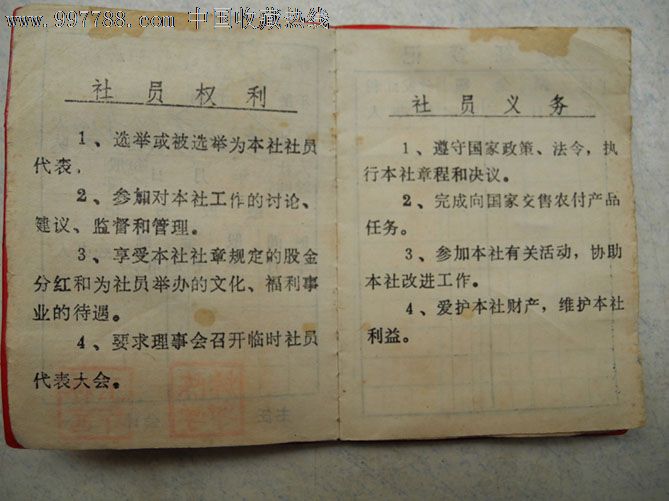 www.997788.com 中国收藏热线
社员权利
1、选举或被选举为本社社员
代表，
2、参加对本社工作的讨论、
建议、监督和管理。
3、享受本社社章规定的股金
分红和为社员举办的文化、福利事
业的待遇。
4、要求理事会召开临时社员
代表大会。
社员义务
1、遵守国家政策、法令，执
行本社章程和决议。
2、完成向国家交售农付产品
任务。
3、参加本社有关活动，协助
本社改进工作。
4、爱护本社财产，维护本社
利益。